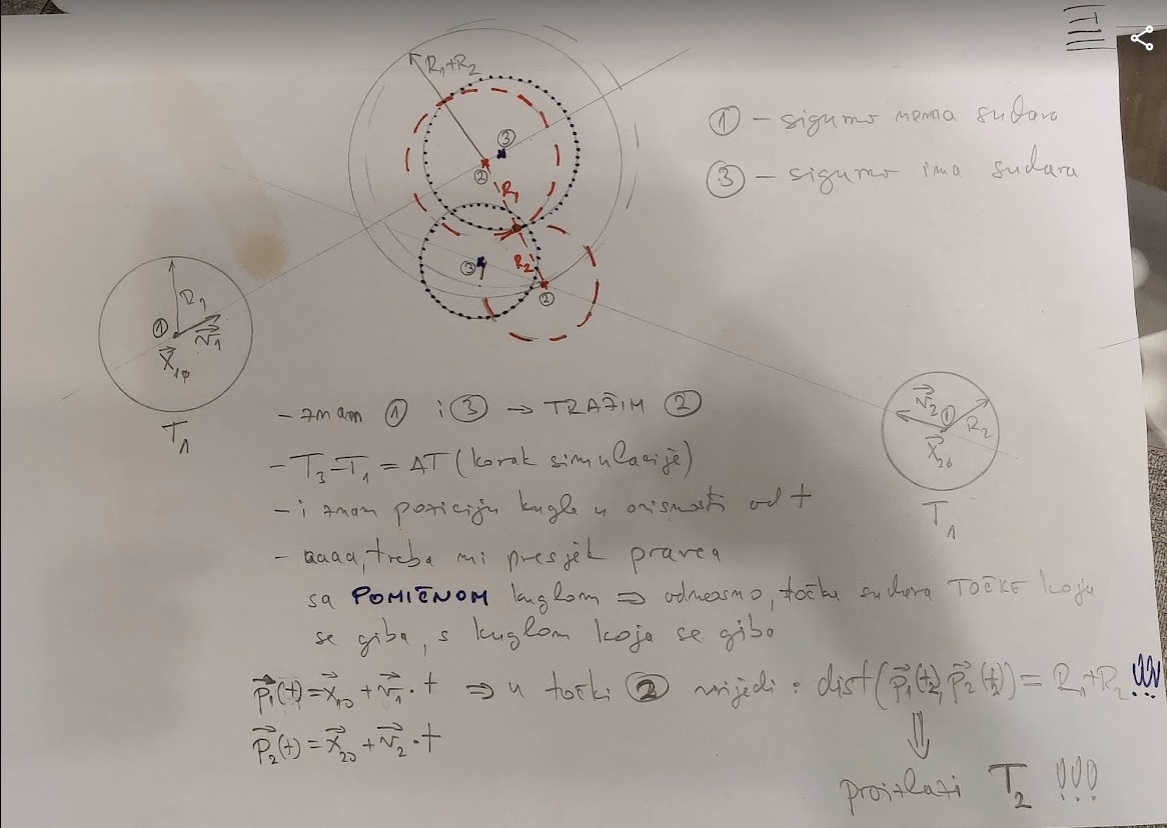 III
R₁+R₂
① – sigurno nema sudara
③
②
③ – sigurno ima sudara
R₁
R₂
③
②
R₁
①
v⃗₁
x⃗₁₀
T₁
v⃗₂
①
R₂
x⃗₂₀
T₁
– znam ① i ③ → TRAŽIM ②
– T₃–T₁ = ΔT (korak simulacije)
– i znam poziciju kugle u ovisnosti od t
– aaaa, treba mi presjek pravca
sa POMIČNOM kuglom ⇒ odnosno, točku sudara TOČKE koja
se giba, s kuglom koja se giba
p⃗₁(t) = x⃗₁₀ + v⃗₁·t ⇒ u točki ② vrijedi: dist(p⃗₁(t₂), p⃗₂(t₂)) = R₁+R₂ !!!
p⃗₂(t) = x⃗₂₀ + v⃗₂·t
⇓
proizlazi T₂ !!!